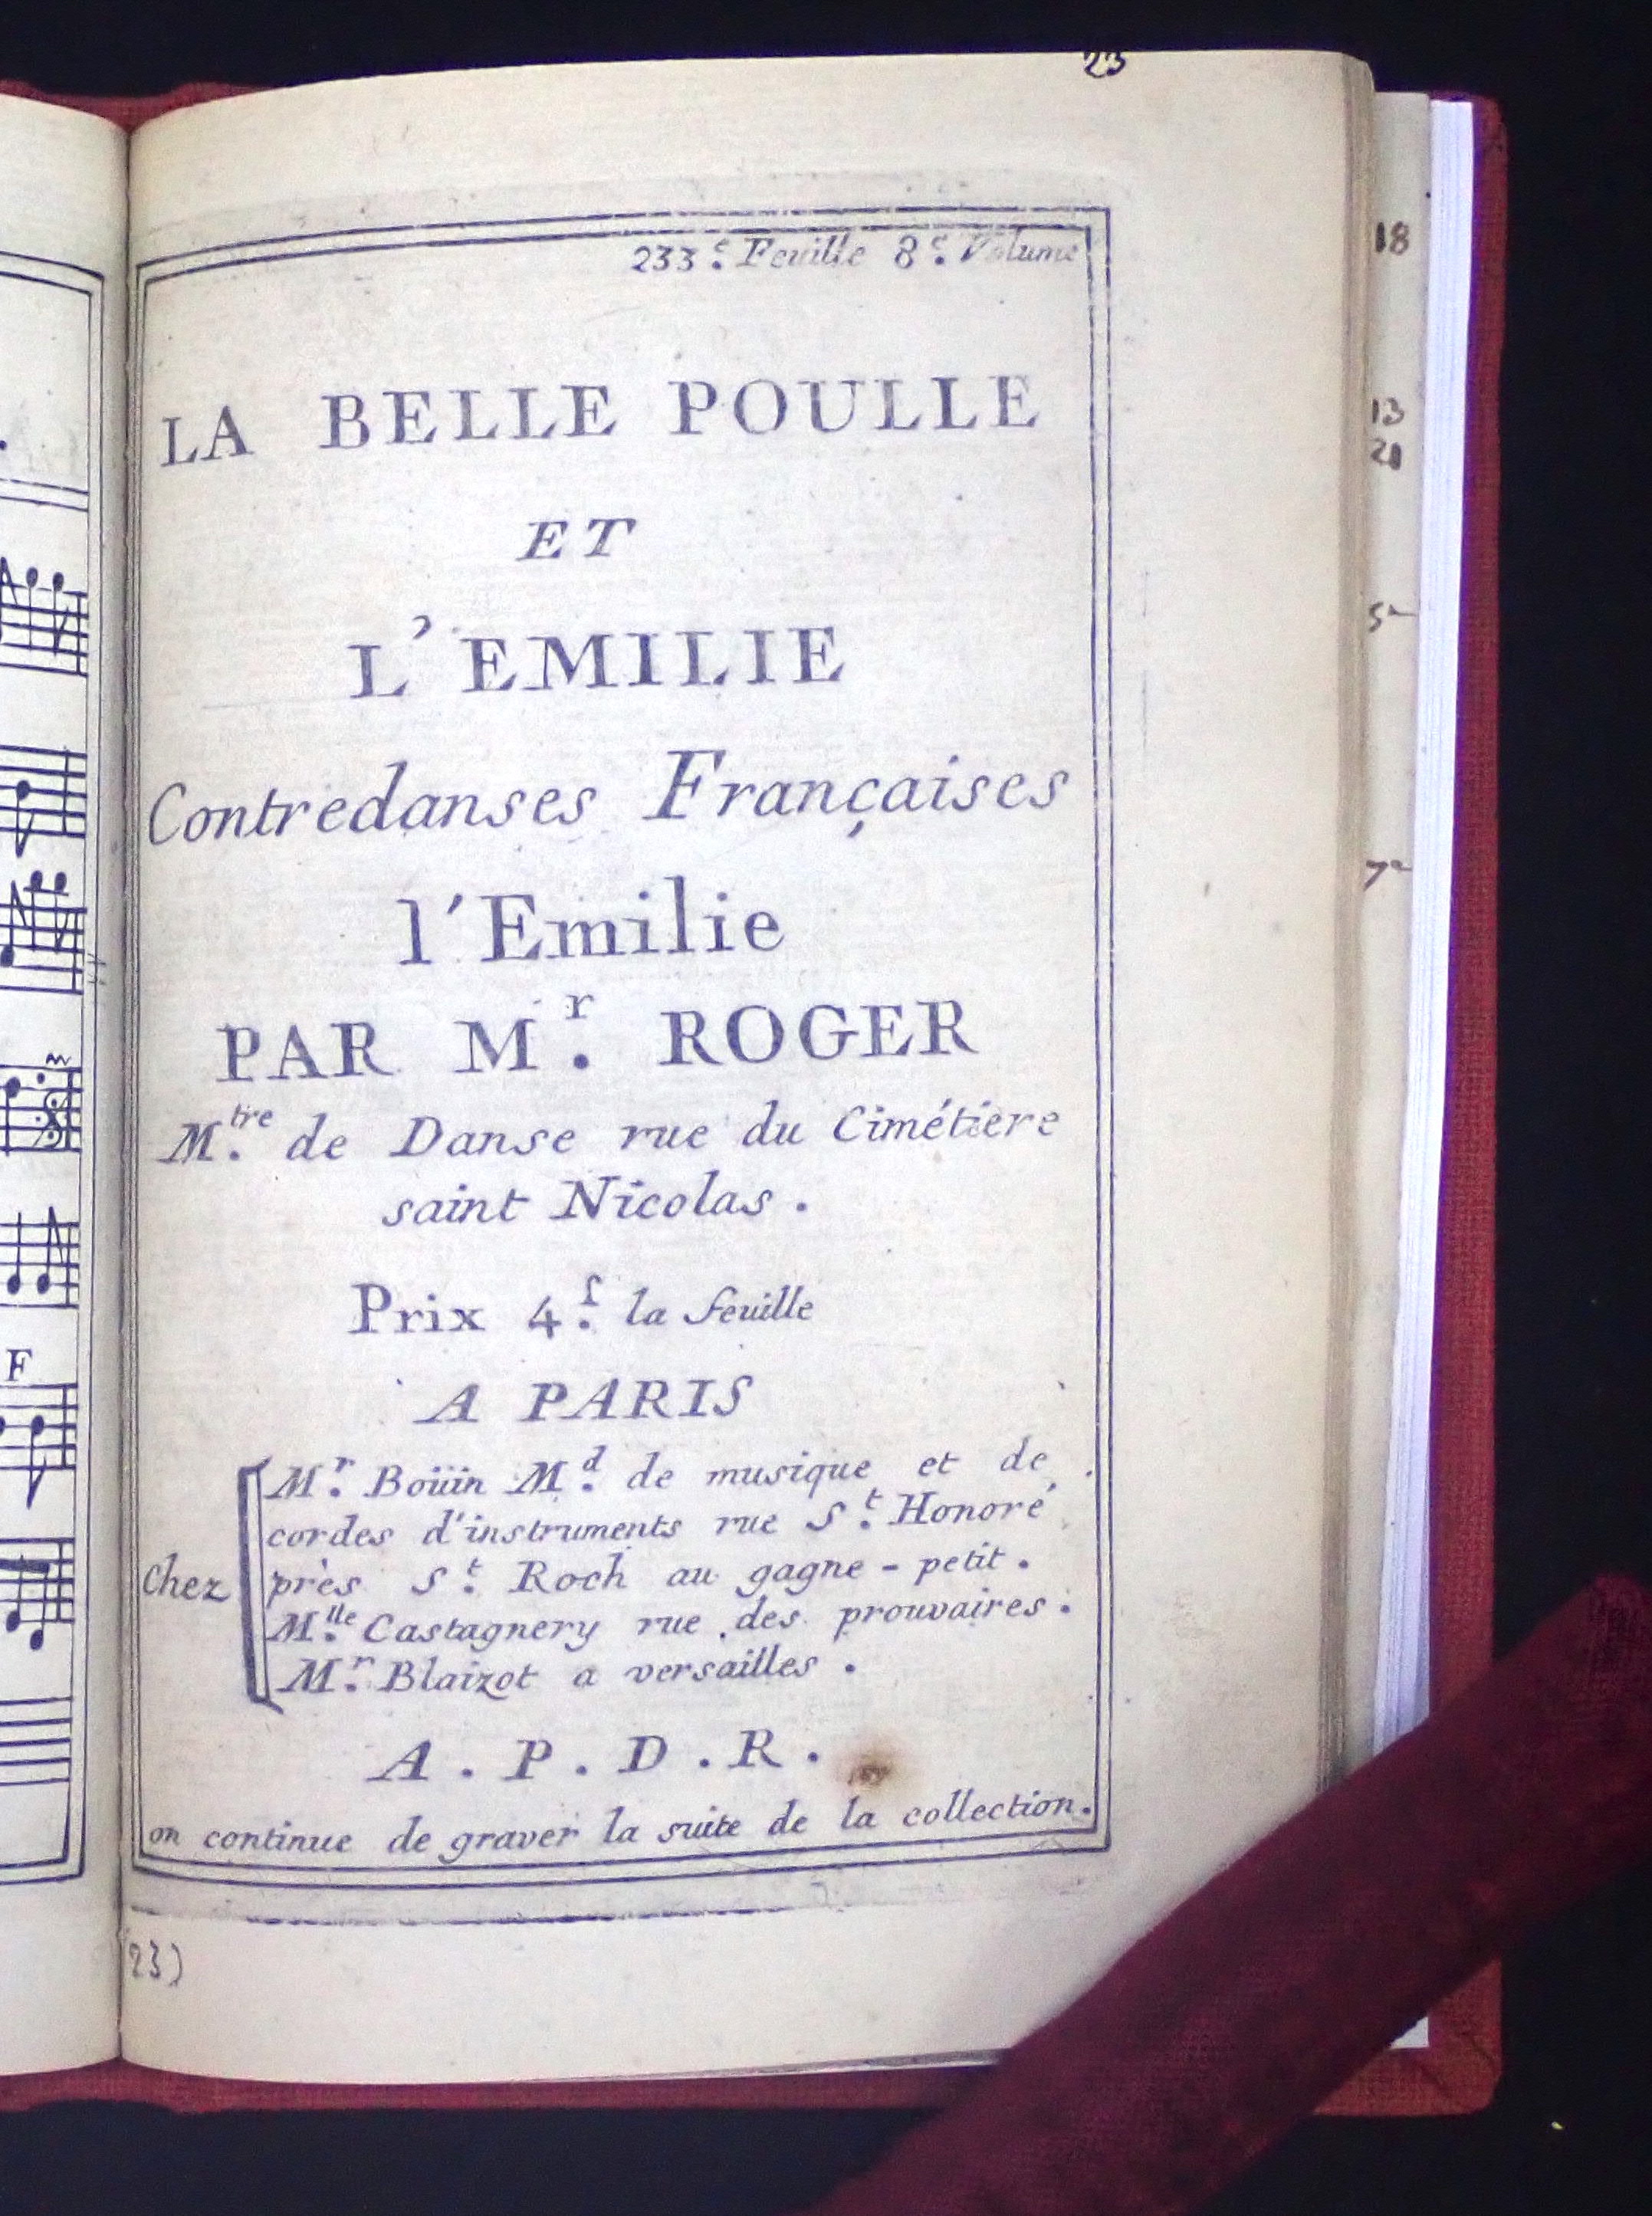 23
233.e Feuille 8.e Volume
LA BELLE POULLE
ET
L'EMILIE
Contredanses Françaises
l'Emilie
PAR M.r ROGER
M.tre de Danse rue du Cimétiere
saint Nicolas.
Prix 4.s la feuille
A PARIS
Chez
M.r Boüin M.d de musique et de
cordes d'instruments rue S.t Honoré
près S.t Roch au gagne-petit.
M.lle Castagnery rue des prouvaires.
M.r Blaizot a versailles.
A.P.D.R.
on continue de graver la suite de la collection.
23)
F
18
13
21